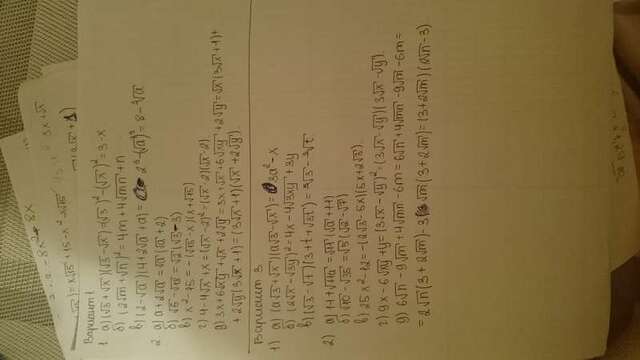 - 8x² - 8x
3x + √x
Вариант 1
1. а) (√3 + √x)(√3 - √x) = (√3)² - (√x)² = 3 - x
б) (2√m + √n)² = 4m + 4√mn + n
в) (2 - √a)(4 + 2√a + a) = 2³ - (√a)³ = 8 - ³√a
2. а) a + 2√a = √a(√a + 2)
в) x² - 15 = -(√15 - x)(x + √15)
г) 4 - 4√x + x = (√x - 2)² = (√x - 2)(√x - 2)
д) 3x + 6√xy + √x + 2√y = 3x + √x + 6√xy + 2√y = √x(3√x + 1) +
+ 2√y(3√x + 1) = (3√x + 1)(√x + 2√y).
Вариант 3
1) а) (a√3 + √x)(a√3 - √x) = 3a² - x
б) (2√x - √3y)² = 4x - 4√3xy + 3y
в) (√3 - √t)(3 + t + √3t) = ³√3 - ³√t
2) а) 11 + √11a = √11(√a + √11)
б) √10 - √35 = √5(√2 - √7)
в) 25x² - 12 = -(2√3 - 5x)(5x + 2√3).
г) 9x - 6√xy + y = (3√x - √y)² = (3√x - √y)(3√x - √y).
д) 6√n - 9√m + 4√mn - 6m = 6√n + 4√mn - 9√m - 6m =
= 2√n(3 + 2√m) - 3√m(3 + 2√m) = (3 + 2√m)(2√n - 3)